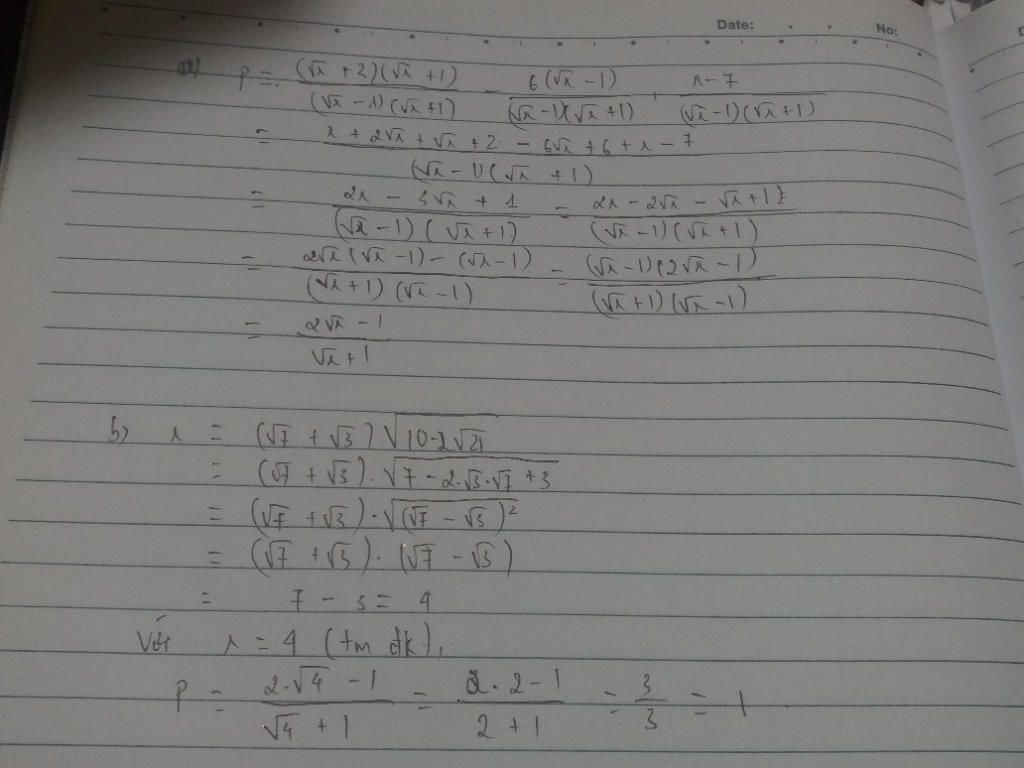 Date: No:
a) P = (√x + 2)(√x + 1) / (√x − 1)(√x + 1) − 6(√x − 1) / (√x − 1)(√x + 1) + x − 7 / (√x − 1)(√x + 1)
= x + 2√x + √x + 2 − 6√x + 6 + x − 7 / (√x − 1)(√x + 1)
= 2x − 3√x + 1 / (√x − 1)(√x + 1) = 2x − 2√x − √x + 1 / (√x − 1)(√x + 1)
= 2√x(√x − 1) − (√x − 1) / (√x + 1)(√x − 1) = (√x − 1)(2√x − 1) / (√x + 1)(√x − 1)
= 2√x − 1 / √x + 1
b) x = (√7 + √3)√(10 − 2√21)
= (√7 + √3).√(7 − 2.√3.√7 + 3)
= (√7 + √3).√((√7 − √3)²)
= (√7 + √3).(√7 − √3)
= 7 − 3 = 4
Với x = 4 (tm đk),
P = 2.√4 − 1 / √4 + 1 = 2.2 − 1 / 2 + 1 = 3 / 3 = 1